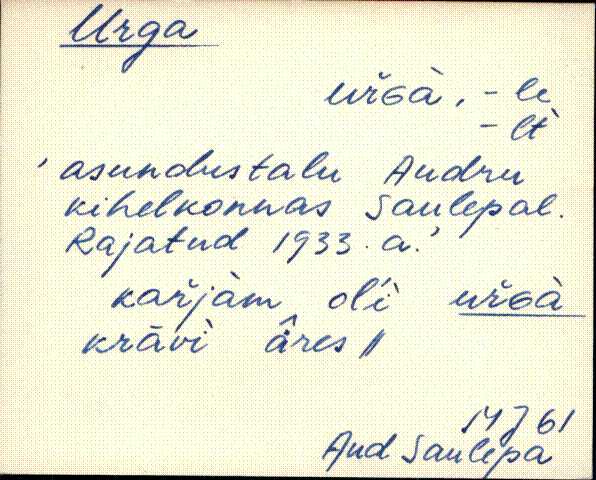 Urga
uřGà, -le
-lt̀
'asundustalu Audru
kihelkonnas Saulepal.
Rajatud 1933. a.'
kařjàm oĺì uřGà
krāvì âres //
Aud Saulepa